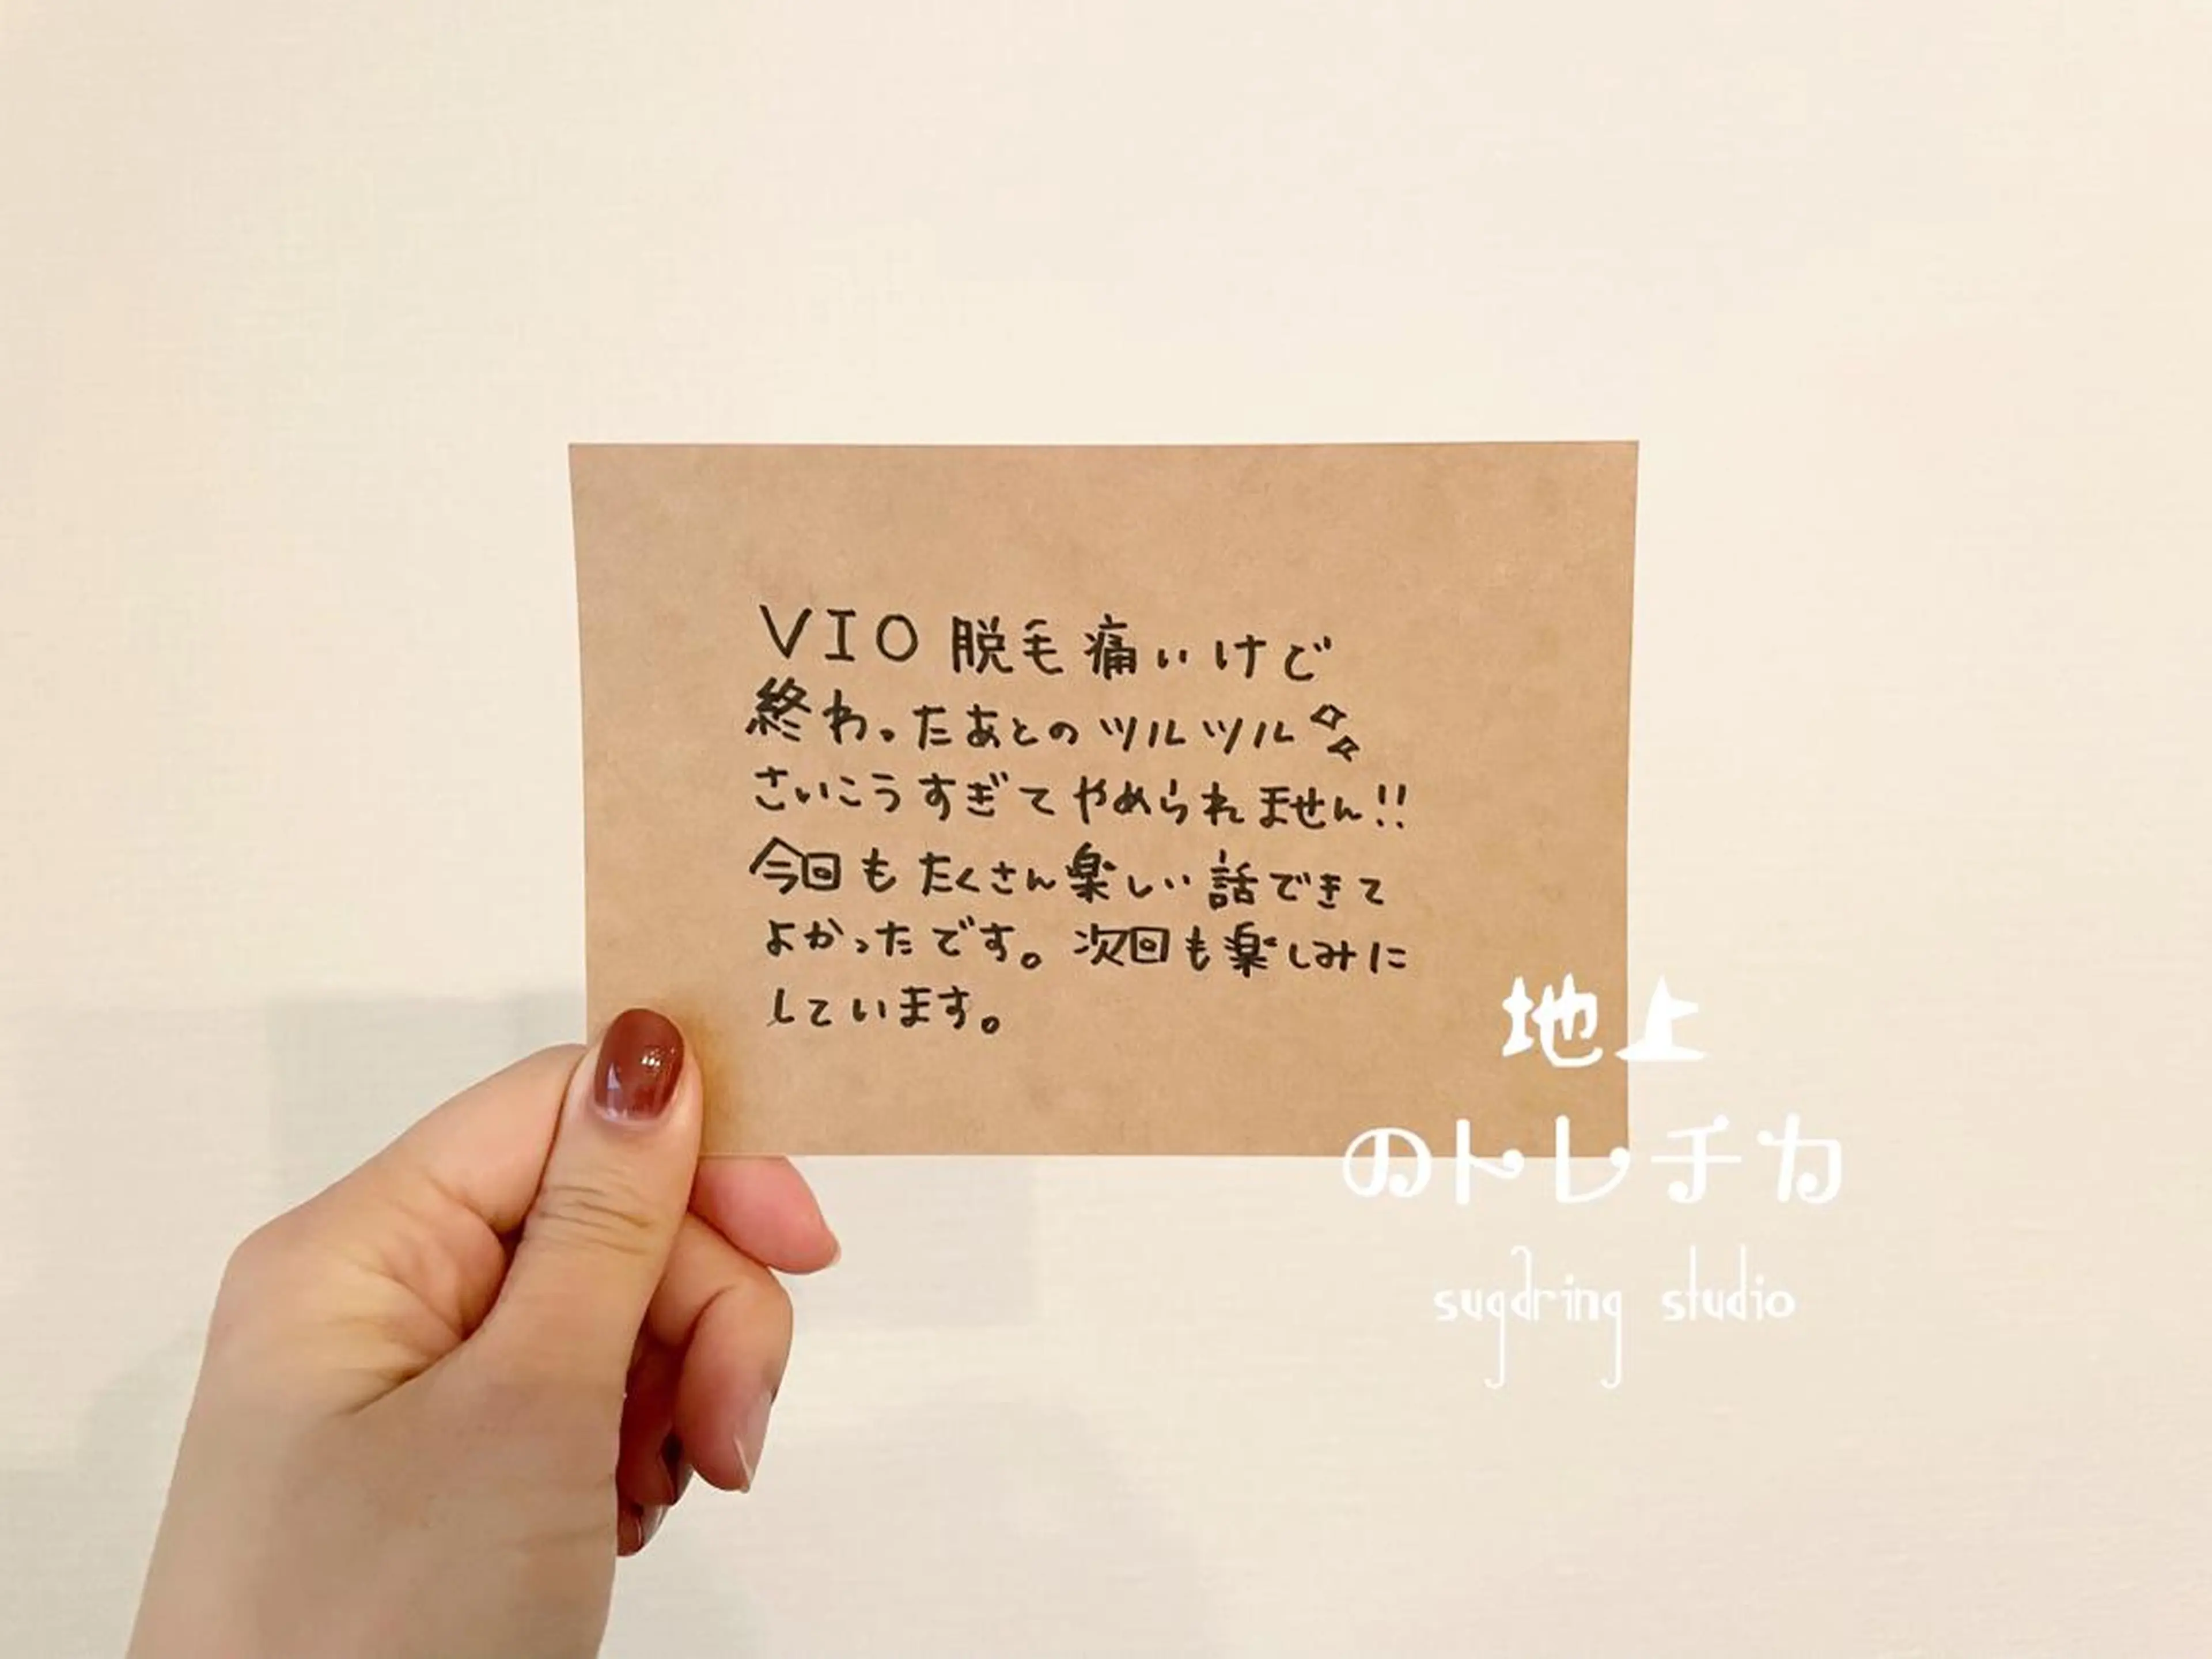 VIO 脱毛痛いけど
終わったあとのツルツル
さいこうすぎてやめられません!!
今回もたくさん楽しい話できて
よかったです。次回も楽しみに
しています。
地上
のトレチカ
sugaring studio